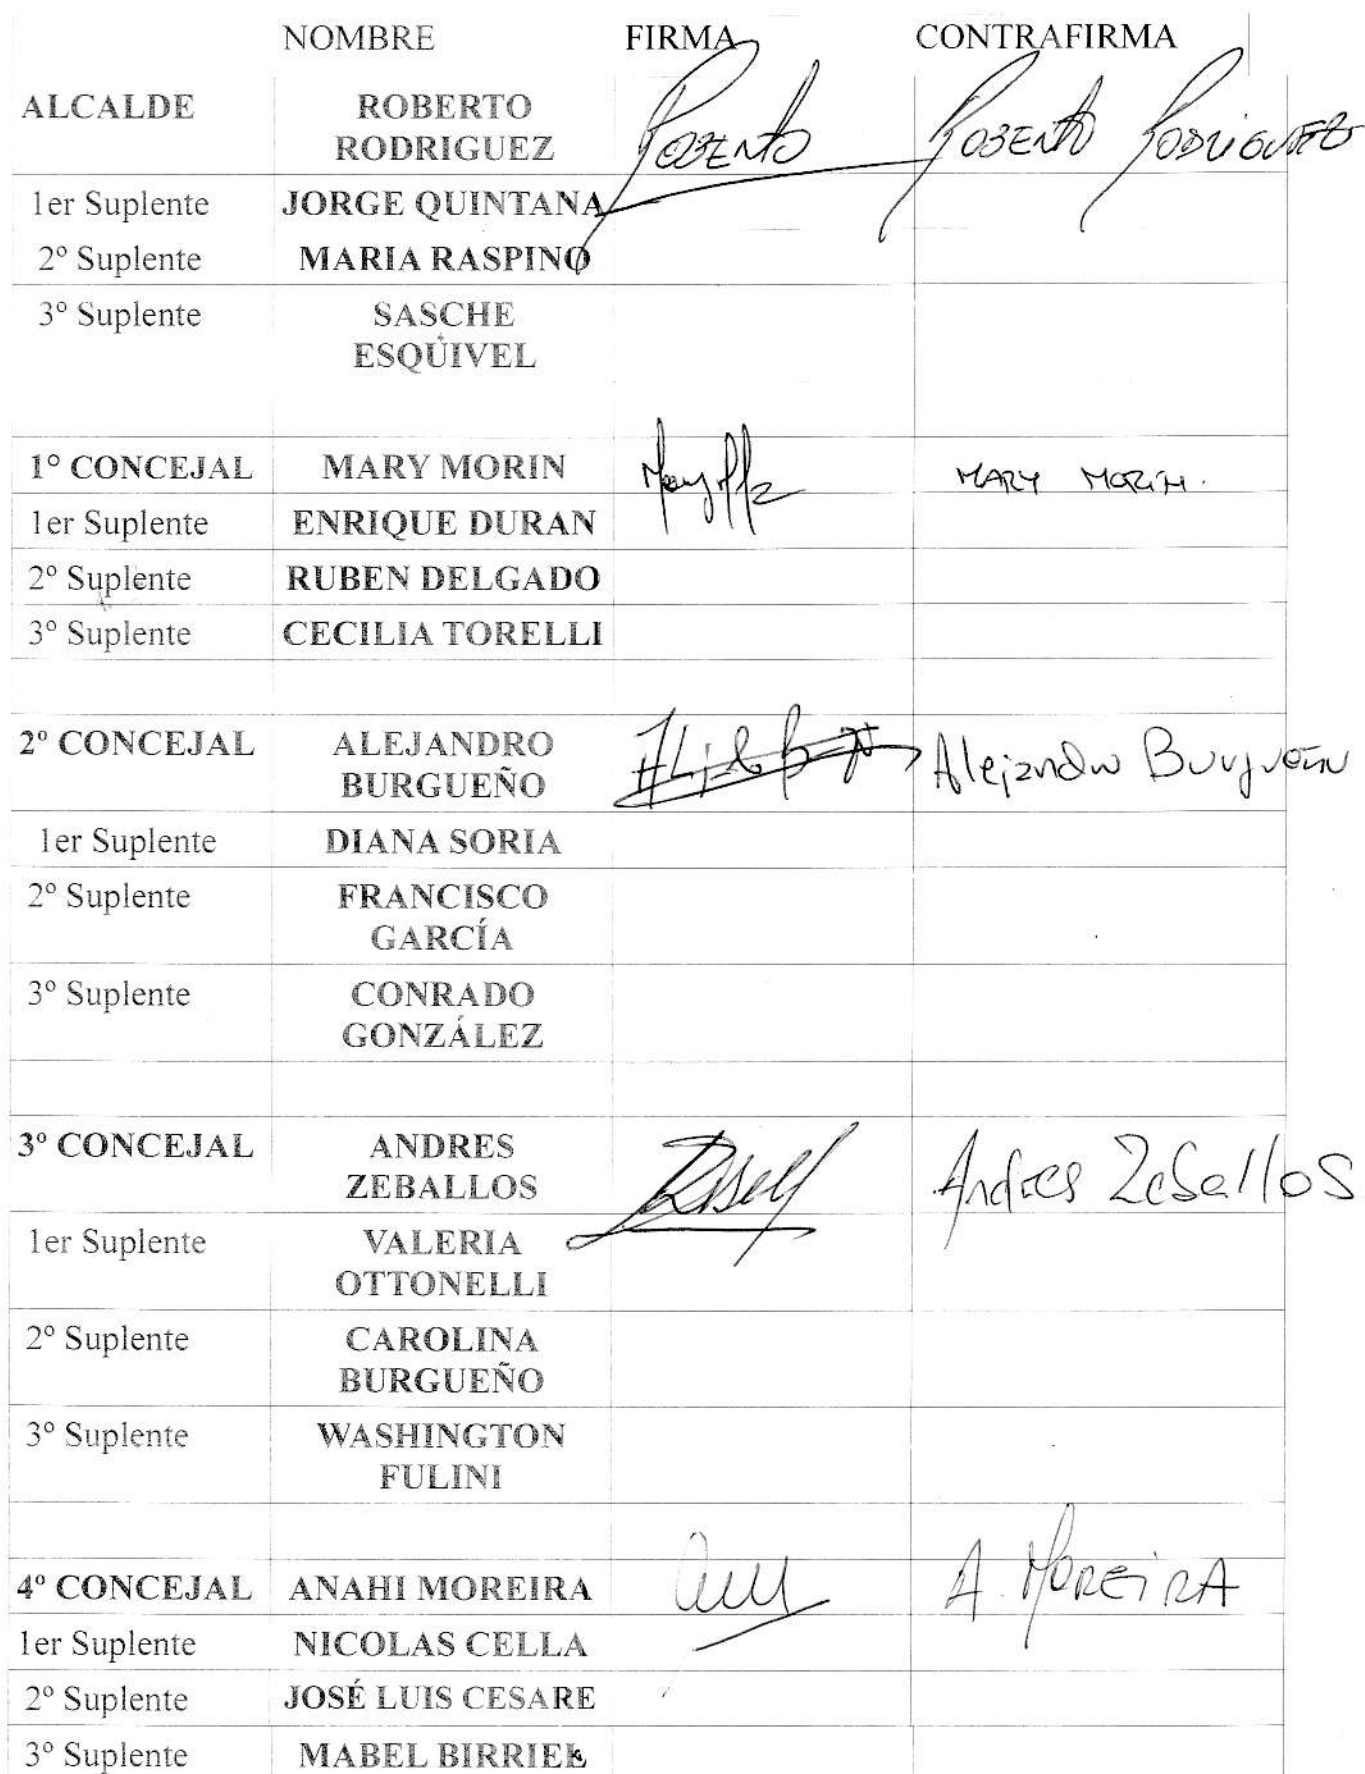 NOMBRE FIRMA CONTRAFIRMA
ALCALDE ROBERTO
RODRIGUEZ
Roberto Roberto Rodriguez
1er Suplente JORGE QUINTANA
2º Suplente MARIA RASPINO
3º Suplente SASCHE
ESQUIVEL
1º CONCEJAL MARY MORIN MARY MORIN.
1er Suplente ENRIQUE DURAN
2º Suplente RUBEN DELGADO
3º Suplente CECILIA TORELLI
2º CONCEJAL ALEJANDRO
BURGUEÑO
Alejandro Burgueño
1er Suplente DIANA SORIA
2º Suplente FRANCISCO
GARCÍA
3º Suplente CONRADO
GONZÁLEZ
3º CONCEJAL ANDRES
ZEBALLOS
Andres Zeballos
1er Suplente VALERIA
OTTONELLI
2º Suplente CAROLINA
BURGUEÑO
3º Suplente WASHINGTON
FULINI
4º CONCEJAL ANAHI MOREIRA A. MOREIRA
1er Suplente NICOLAS CELLA
2º Suplente JOSÉ LUIS CESARE
3º Suplente MABEL BIRRIEL